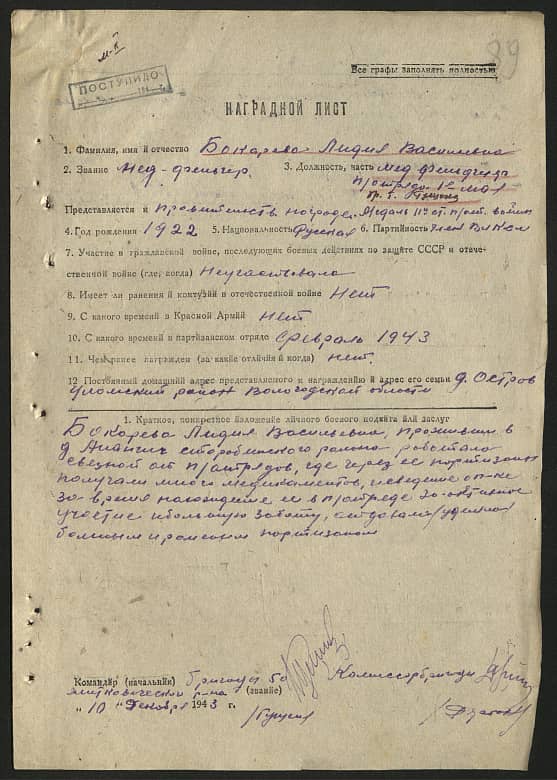 м-II
89
ПОСТУПИЛО
Все графы заполнять полностью
НАГРАДНОЙ ЛИСТ
1. Фамилия, имя й отчество Бокарева Лидия Васильевна
2. Звание Мед-фельчер. 3. Должность, часть Мед фельдчера
Представляется к правительств награде. Медаль II ст. парт. войны
4. Год рождения 1922 5. Национальность русская 6. Партийность член ВЛКСМ
7. Участие в гражданской войне, последующих боевых действиях по защите СССР и отече-
ственной войне (где, когда) Неучаствовала
8. Имеет ли ранения й контузий в отечественной войне Нет
9. С какого временй в Красной Армий нет
10. С какого временй в партйзанском отряде февраль 1943
11. Чем ранее награжден (за какие отличия й когда) нет.
12 Постоянный домашний адрес представляемого к награждению й адрес его семьи д. Остров
Уломский район Вологодской области
1. Краткое, конкретное йзложение лйчного боевого подвига йлй заслуг
Бокарева Лидия Васильевна, проживши в
старобинского района работала
связной от п/отрядов, где через ее партизаны
получали много медикаментов,
за время нахождение ее в п/отряде
участие и большую заботу,
больным и раненым партизаном
Командйр (начальнйк) бригады 50
Житковического р-на (звание) Комиссар бригады
„ 10 " декабря 1943 г.